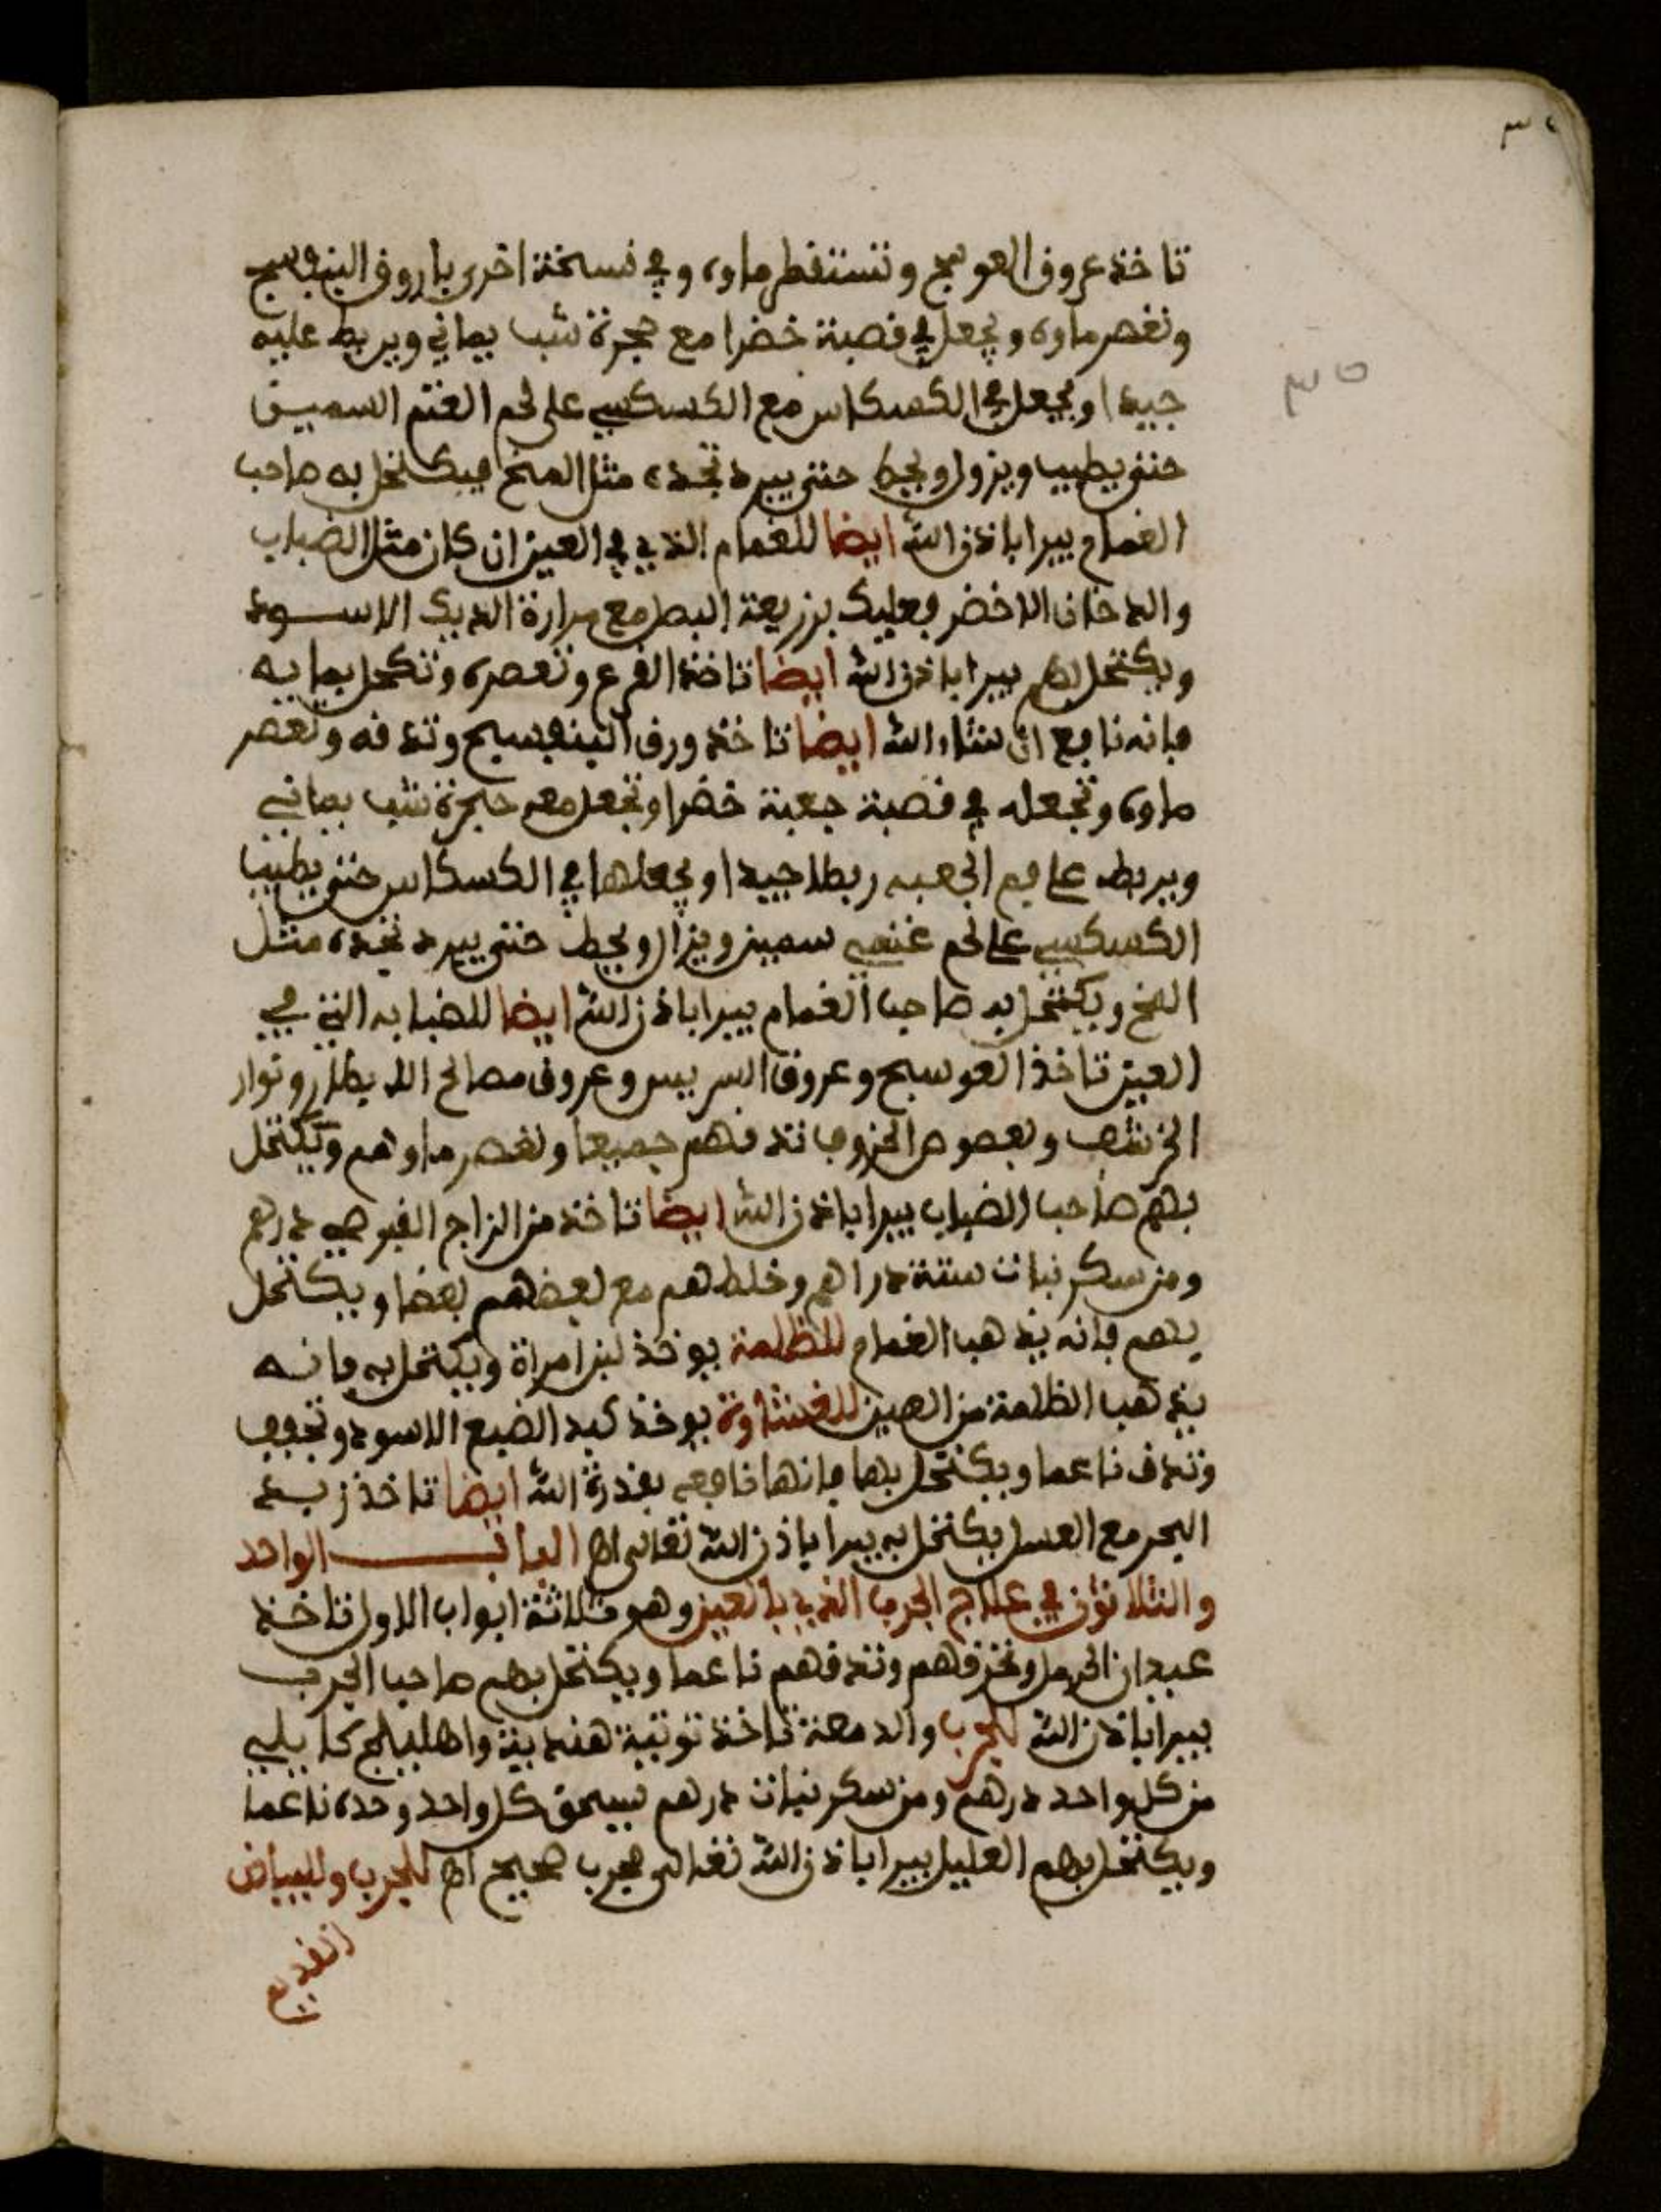 تاخذ عروق العوسج وتستقطر ماوه وفي نسخة اخرى باروق البنفسج
وتعصر ماوه ويجعل في قصبة خضرا مع حجرة شب يماني ويربط عليه
جيدا ويجعل في الكسكاس مع الكسكسي على لحم الغنم السمين
حتى يطيب ويزول ويحط حتى يبرد تجده مثل المخ فيكتحل به صاحب
الغمام يبرا باذن الله ايضا للغمام الذي في العين ان كان مثل الضباب
والدخان الاخضر فعليك بزريعة البصل مع مرارة الديك الاسود
ويكتحل بهم يبرا باذن الله ايضا تاخذ القرع وتعصره وتكحل بمايه
فانه نافع ان شاء الله ايضا تاخذ ورق البنفسيج وتدقه وتعصر
ماوه وتجعله في قصبة جعبة خضرا وتجعل معه حجرة شب يماني
ويربط على فم الجعبه ربطا جيدا ويجعلها في الكسكاس حتى يطيب
الكسكسي على لحم غنمي سمين ويزال ويحط حتى يبرد تجده مثل
المخ ويكتحل به صاحب الغمام يبرا باذن الله ايضا للضبابه التي في
العين تاخذ العوسج وعروق البسريس وعروق مصالح الديطار ونوار
الخرشف وبعصوص الخروب تدقهم جميعا وتعصر ماوهم ويكتحل
بهم صاحب الضباب يبرا باذن الله ايضا تاخذ من الزاج القبرصي درهم
ومن سكر نبات ستة دراهم وخلطهم مع بعضهم بعضا ويكتحل
بهم فانه يذهب الغمام للظلمة يوخذ لبن امراة ويكتحل به فانه
يذهب الظلمة من العين للغشاوة يوخذ كبد الضبع الاسود وتجفف
وتدق ناعما ويكتحل بها فانها نافعه بقدرة الله ايضا تاخذ زبد
البحر مع العسل يكتحل به يبرا باذن الله تعالى اه الباب الواحد
والثلاثون في علاج الجرب الذي بالعين وهو ثلاثة ابواب الاول تاخذ
عيدان الحرمل وتحرقهم وتدقهم ناعما ويكتحل بهم صاحب الجرب
يبرا باذن الله للجرب والدمعة تاخذ توتية هندية واهليلج كابلي
من كل واحد درهم ومن سكر نبات درهم يسحق كل واحد وحده ناعما
ويكتحل بهم العليل يبرا باذن الله تعالى مجرب صحيح اه للجرب والبياض
القديم